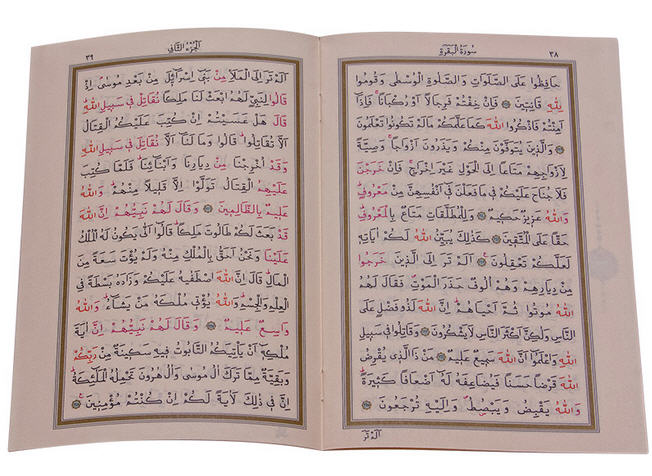 ٣٨
سُورَةُ الْبَقَرَةِ
حَافِظُوا عَلَى الصَّلَوَاتِ وَالصَّلٰوةِ الْوُسْطٰى وَقُومُوا
لِلّٰهِ قَانِتٖينَ ۞ فَاِنْ خِفْتُمْ فَرِجَالًا اَوْ رُكْبَانًا ۚ فَاِذَٓا
اَمِنْتُمْ فَاذْكُرُوا اللّٰهَ كَمَا عَلَّمَكُمْ مَا لَمْ تَكُونُوا تَعْلَمُونَ
۞ وَالَّذٖينَ يُتَوَفَّوْنَ مِنْكُمْ وَيَذَرُونَ اَزْوَاجًا ۚ وَصِيَّةً
لِاَزْوَاجِهِمْ مَتَاعًا اِلَى الْحَوْلِ غَيْرَ اِخْرَاجٍ ۚ فَاِنْ خَرَجْنَ
فَلَا جُنَاحَ عَلَيْكُمْ فٖى مَا فَعَلْنَ فٖٓى اَنْفُسِهِنَّ مِنْ مَعْرُوفٍ ؕ
وَاللّٰهُ عَزٖيزٌ حَكٖيمٌ ۞ وَلِلْمُطَلَّقَاتِ مَتَاعٌ بِالْمَعْرُوفِ ؕ
حَقًّا عَلَى الْمُتَّقٖينَ ۞ كَذٰلِكَ يُبَيِّنُ اللّٰهُ لَكُمْ اٰيَاتِهٖ
لَعَلَّكُمْ تَعْقِلُونَ ۞ اَلَمْ تَرَ اِلَى الَّذٖينَ خَرَجُوا
مِنْ دِيَارِهِمْ وَهُمْ اُلُوفٌ حَذَرَ الْمَوْتِ ۖ فَقَالَ لَهُمُ
اللّٰهُ مُوتُوا ثُمَّ اَحْيَاهُمْ ؕ اِنَّ اللّٰهَ لَذُو فَضْلٍ عَلَى
النَّاسِ وَلٰكِنَّ اَكْثَرَ النَّاسِ لَا يَشْكُرُونَ ۞ وَقَاتِلُوا فٖى سَبٖيلِ
اللّٰهِ وَاعْلَمُٓوا اَنَّ اللّٰهَ سَمٖيعٌ عَلٖيمٌ ۞ مَنْ ذَا الَّذٖى يُقْرِضُ
اللّٰهَ قَرْضًا حَسَنًا فَيُضَاعِفَهُ لَهُٓ اَضْعَافًا كَثٖيرَةً ؕ
وَاللّٰهُ يَقْبِضُ وَيَبْصُطُ ۖ وَاِلَيْهِ تُرْجَعُونَ ۞
اَلَمْ تَرَ
اَلْجُزْءُ الثَّانٖى
٣٩
اَلَمْ تَرَ اِلَى الْمَلَاِ مِنْ بَنٖٓى اِسْرَٓائٖلَ مِنْ بَعْدِ مُوسٰى ۘ اِذْ
قَالُوا لِنَبِىٍّ لَهُمُ ابْعَثْ لَنَا مَلِكًا نُقَاتِلْ فٖى سَبٖيلِ اللّٰهِ ؕ
قَالَ هَلْ عَسَيْتُمْ اِنْ كُتِبَ عَلَيْكُمُ الْقِتَالُ
اَلَّا تُقَاتِلُوا ؕ قَالُوا وَمَا لَنَٓا اَلَّا نُقَاتِلَ فٖى سَبٖيلِ اللّٰهِ
وَقَدْ اُخْرِجْنَا مِنْ دِيَارِنَا وَاَبْنَٓائِنَا ؕ فَلَمَّا كُتِبَ
عَلَيْهِمُ الْقِتَالُ تَوَلَّوْا اِلَّا قَلٖيلًا مِنْهُمْ ؕ وَاللّٰهُ
عَلٖيمٌ بِالظَّالِمٖينَ ۞ وَقَالَ لَهُمْ نَبِيُّهُمْ اِنَّ اللّٰهَ
قَدْ بَعَثَ لَكُمْ طَالُوتَ مَلِكًا ؕ قَالُٓوا اَنّٰى يَكُونُ لَهُ الْمُلْكُ
عَلَيْنَا وَنَحْنُ اَحَقُّ بِالْمُلْكِ مِنْهُ وَلَمْ يُؤْتَ سَعَةً مِنَ
الْمَالِ ؕ قَالَ اِنَّ اللّٰهَ اصْطَفٰيهُ عَلَيْكُمْ وَزَادَهُ بَسْطَةً فِى
الْعِلْمِ وَالْجِسْمِ ؕ وَاللّٰهُ يُؤْتٖى مُلْكَهُ مَنْ يَشَٓاءُ ؕ وَاللّٰهُ
وَاسِعٌ عَلٖيمٌ ۞ وَقَالَ لَهُمْ نَبِيُّهُمْ اِنَّ اٰيَةَ
مُلْكِهٖٓ اَنْ يَاْتِيَكُمُ التَّابُوتُ فٖيهِ سَكٖينَةٌ مِنْ رَبِّكُمْ
وَبَقِيَّةٌ مِمَّا تَرَكَ اٰلُ مُوسٰى وَاٰلُ هٰرُونَ تَحْمِلُهُ الْمَلٰٓئِكَةُ ؕ
اِنَّ فٖى ذٰلِكَ لَاٰيَةً لَكُمْ اِنْ كُنْتُمْ مُؤْمِنٖينَ ۞